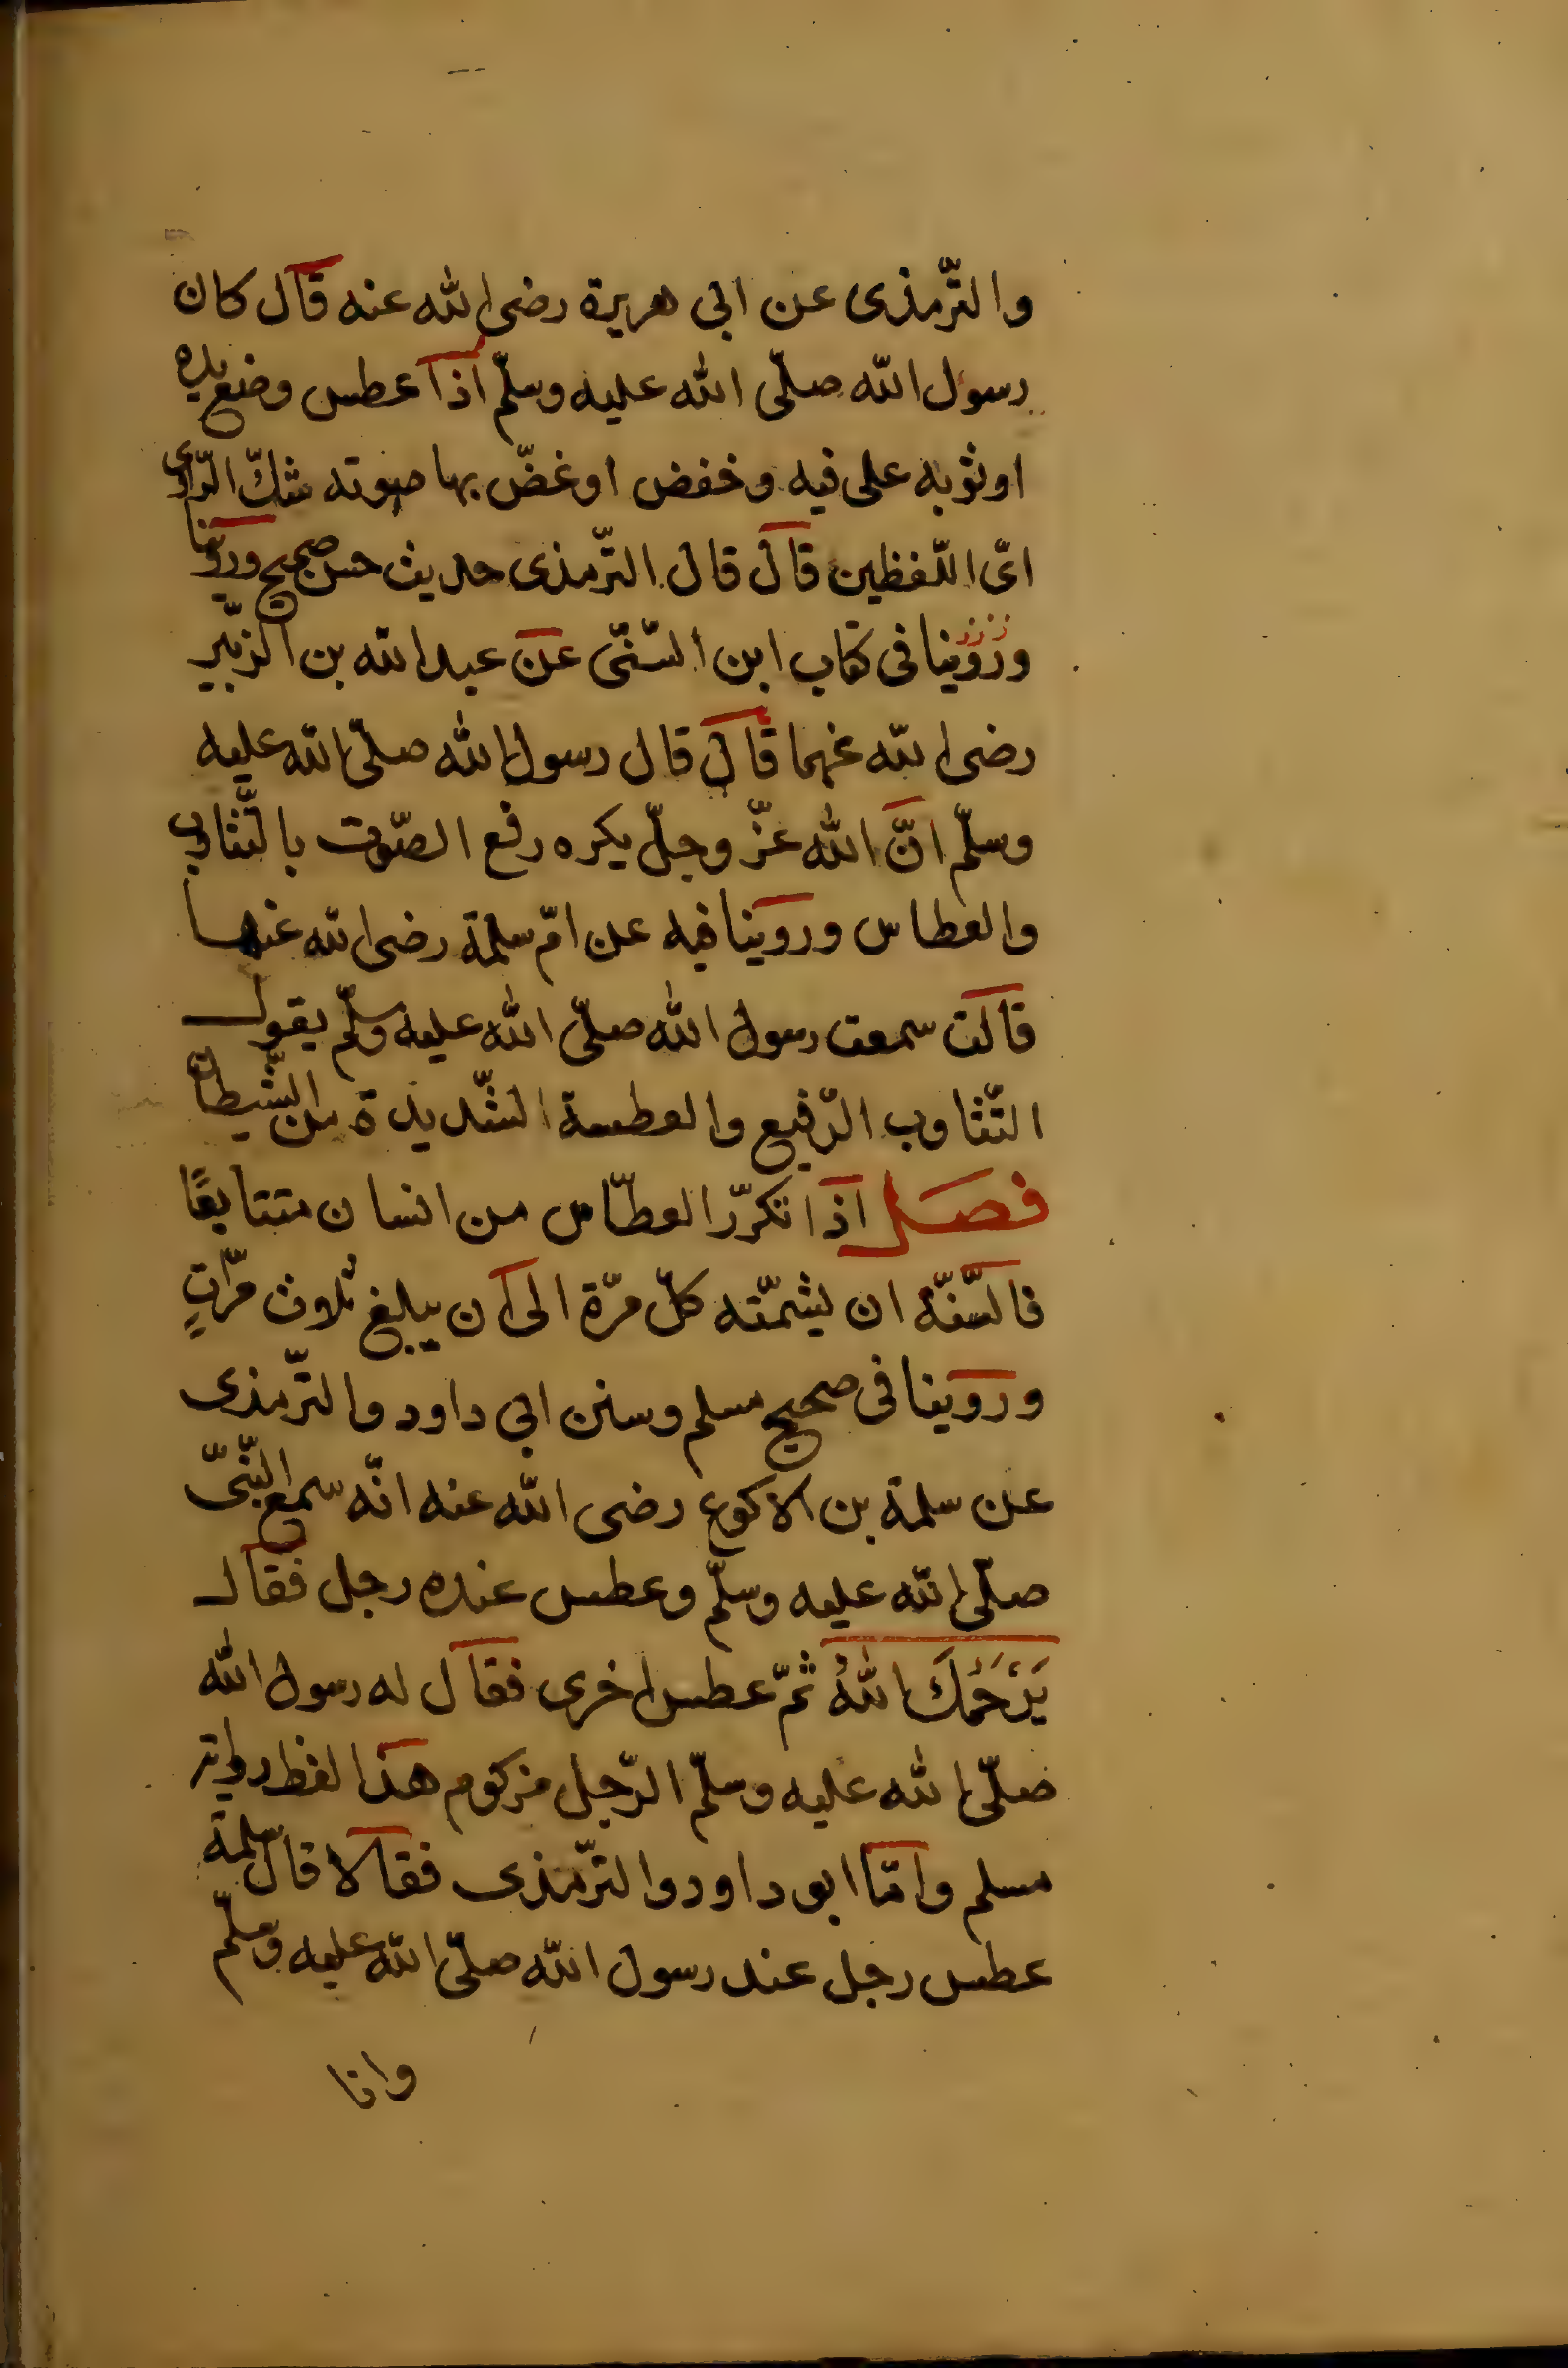 والترّمذى عن ابى هريرة رضى الله عنه قال كان
رسول الله صلّى الله عليه وسلّم اذا عطس وضع يده
اوثوبه على فيه وخفض اوغضّ بها صوته شكّ الرّاوى
اىّ اللّفظين قال قال الترّمذى حديث حسن صحيح وروينا
وروينا فى كتاب ابن السّنّى عن عبد الله بن الزّبير
رضى الله عنهما قال قال رسول الله صلّى الله عليه
وسلّم انّ الله عزّ وجلّ يكره رفع الصّوت بالتّثاوب
والعطاس وروينا فيه عن امّ سلمة رضى الله عنها
قالت سمعت رسول الله صلّى الله عليه وسلّم يقول
التّثاوب الرّفيع والعطسة الشّديدة من الشّيطان
فصل اذا تكرّر العطّاس من انسان متتابعًا
فالسّنّة ان يشمّته كلّ مرّة الى ان يبلغ ثلاث مرّاتٍ
وروينا فى صحيح مسلم وسنن ابى داود والترّمذى
عن سلمة بن الاكوع رضى الله عنه انّه سمع النّبىّ
صلّى الله عليه وسلّم وعطس عنده رجل فقال
يَرْحَمُكَ اللهُ ثمّ عطس اخرى فقال له رسول الله
صلّى الله عليه وسلّم الرّجل مزكوم هذا لفظ رواية
مسلم وامّا ابو داود والترّمذى فقالا قال سلمة
عطس رجل عند رسول الله صلّى الله عليه وسلّم
وانا